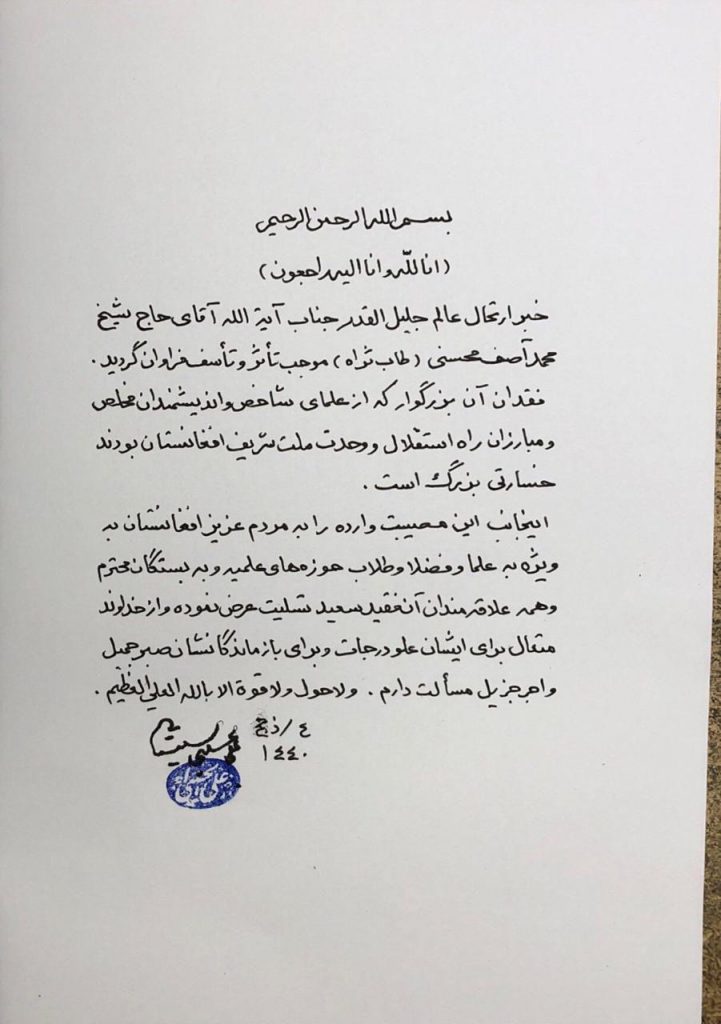 بسم الله الرحمن الرحیم
(انا لله و انا الیه راجعون)
خبر ارتحال عالم جلیل القدر جناب آیة الله آقای حاج شیخ
محمد آصف محسنی (طاب ثراه) موجب تأثر و تأسف فراوان گردید.
فقدان آن بزرگوار که از علمای شاخص و اندیشمندان مخلص
و مبارزان راه استقلال و وحدت ملت شریف افغانستان بودند
خسارتی بزرگ است.
اینجانب این مصیبت وارده را به مردم عزیز افغانستان به
ویژه به علما و فضلا و طلاب حوزه‌های علمیه و به بستگان محترم
و همه علاقه‌مندان آن فقید سعید تسلیت عرض نموده و از خداوند
متعال برای ایشان علو درجات و برای بازماندگانشان صبر جمیل
و اجر جزیل مسألت دارم. ولا حول ولا قوة الا بالله العلی العظیم.
٤/ذح
١٤٤٠
علی الحسینی السیستانی